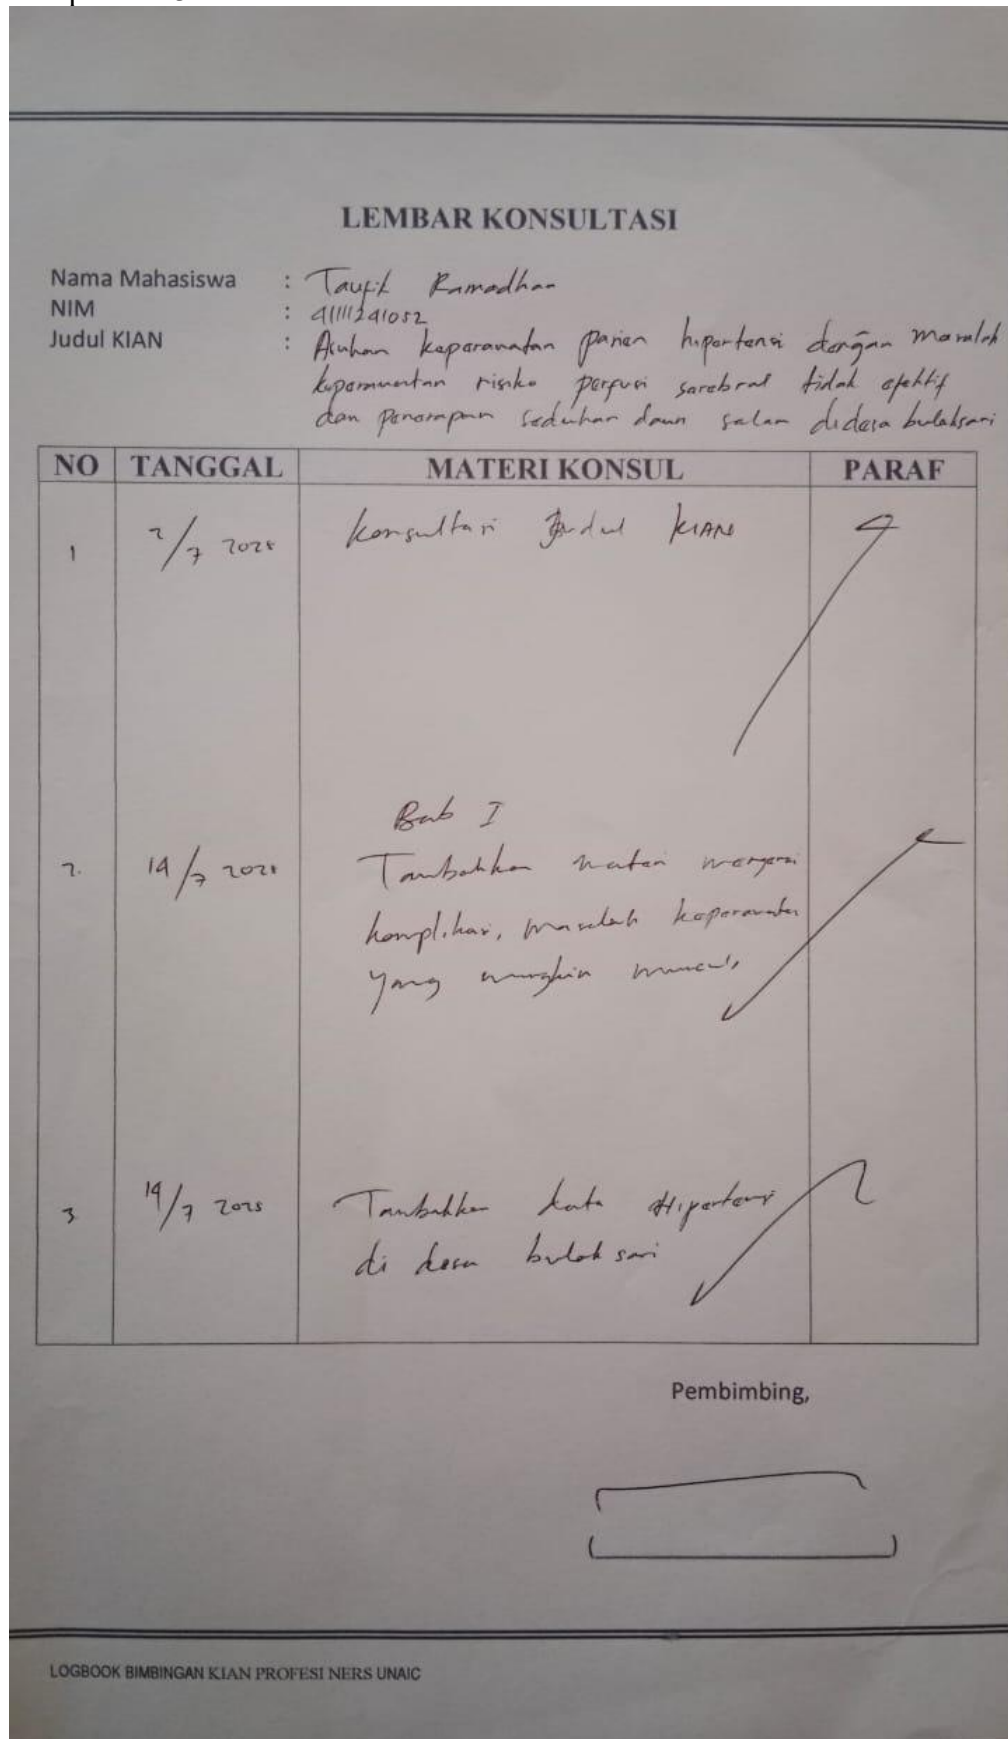 LEMBAR KONSULTASI
Nama Mahasiswa : Taufik Ramadhan
NIM : 41111241052
Judul KIAN : Asuhan keperawatan pasien hipertensi dengan masalah
keperawatan risiko perfusi serebral tidak efektif
dan penerapan seduhan daun salam didesa bulaksari
NO TANGGAL MATERI KONSUL PARAF
1 2/7 2025 Konsultasi Judul KIAN
Bab I
2. 14/7 2025 Tambahkan materi mengenai
komplikasi, masalah keperawatan
yang mungkin muncul,
3. 19/7 2025 Tambahkan data Hipertensi
di desa bulaksari
Pembimbing,
LOGBOOK BIMBINGAN KIAN PROFESI NERS UNAIC